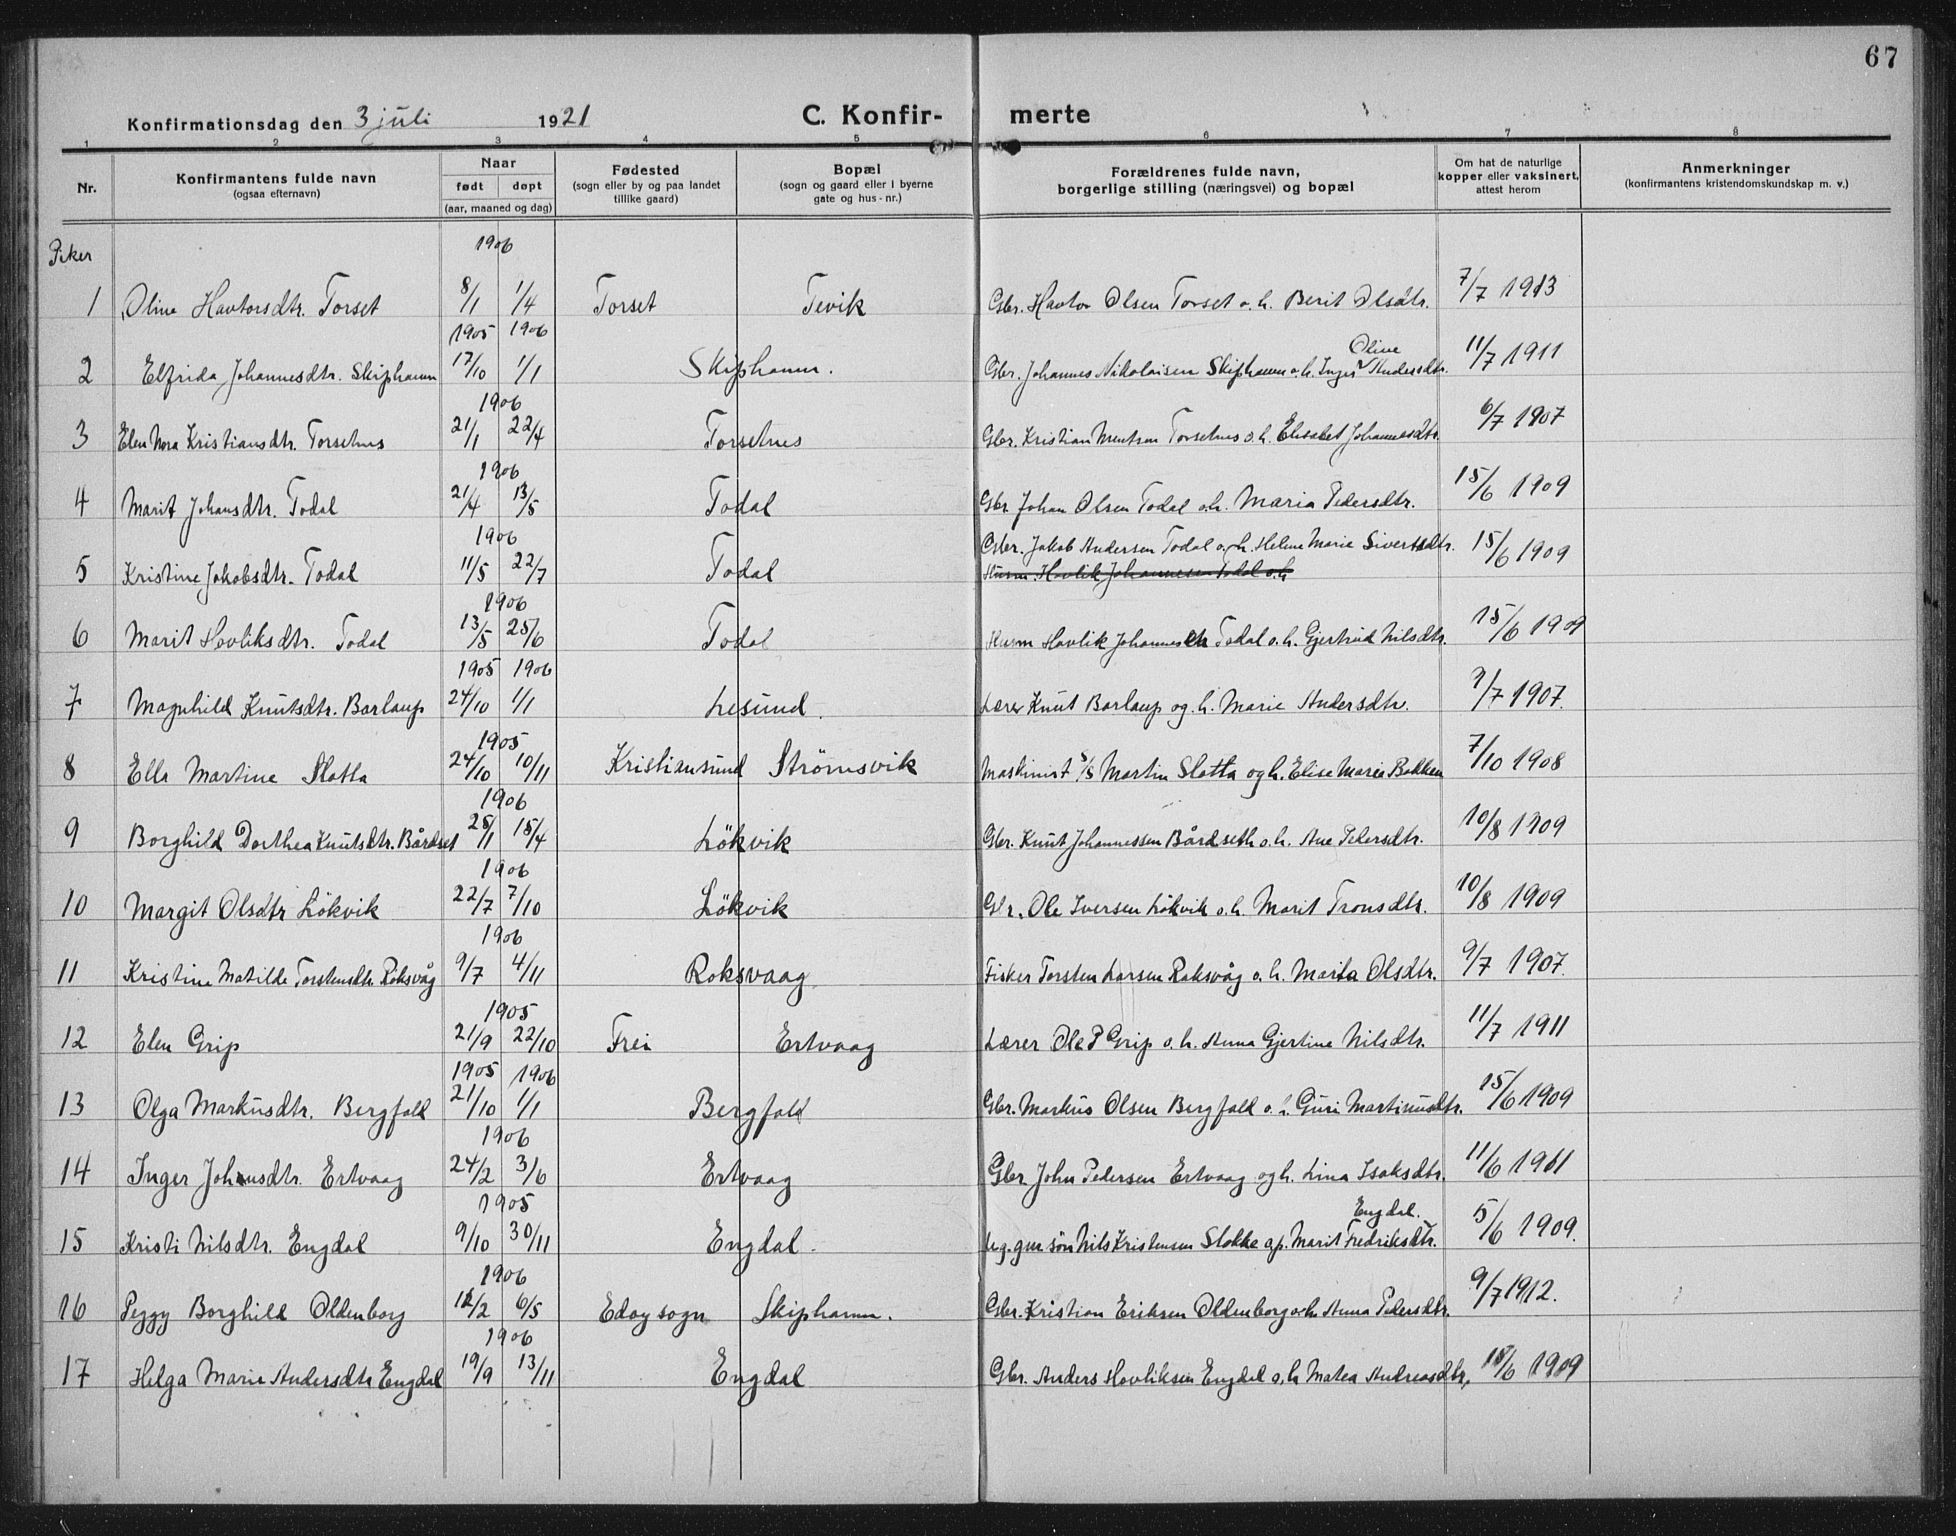 67
Konfirmationsdag den 3 juli 1921 C. Konfir- merte
1 2 3 4 5 6 7 8
Nr. Konfirmantens fulde navn (ogsaa efternavn) Naar født døpt (aar, maaned og dag) Fødested (sogn eller by og paa landet tillike gaard) Bopæl (sogn og gaard eller i byerne gate og hus-nr.) Forældrenes fulde navn, borgerlige stilling (næringsvei) og bopæl Om hat de naturlige kopper eller vaksinert, attest herom Anmerkninger (konfirmantens kristendomskundskap m. v.)
Piker
1906
1 Oline Havtorsdtr. Torset 8/1 1/4 Torset Tevik Gbr. Havtor Olsen Torset o.h. Berit Olsdtr. 7/7 1913
1905 1906
2 Elfrida Johannesdtr. Skiphamn 17/10 1/1 Skiphamn. Gbr. Johannes Nikolaisen Skiphamn o.h. Inger Oline Andersdtr. 11/7 1911
1906
3 Elen Nora Kristiansdtr. Torsetnes 21/1 22/4 Torsetnes Gbr. Kristian Torsetnes o.h. Elisabet Johannesdtr. 6/7 1907
1906
4 Marit Johansdtr. Todal 21/4 13/5 Todal Gbr Johan Olsen Todal o.h. Maria Pedersdtr. 15/6 1909
1906
5 Kristine Jakobsdtr. Todal 11/5 22/7 Todal Gbr. Jakob Andersen Todal o.h. Helene Marie Sivertsdtr. 15/6 1909
Husm. Havlik Johannesen Todal o.h
1906
6 Marit Havliksdtr. Todal 13/5 25/6 Todal Husm Havlik Johannesen Todal o.h. Gjertrud Nilsdtr. 15/6 1909
1905 1906
7 Magnhild Knutsdtr. Barlaup 24/10 1/1 Lesund. Lærer Knut Barlaup og. h. Marie Andersdtr. 9/7 1907.
1905
8 Ella Martine Slatta 24/10 10/11 Kristiansund Strömsvik Maskinist S/S Martin Slatta og h. Elise Maria Bakken 7/10 1908
1906
9 Borghild Dorthea Knutsdtr. Bårdset 25/1 15/4 Lökvik Gbr. Knut Johannessen Bårdseth o.h. Ane Pedersdtr. 10/8 1909
1906
10 Margit Olsdtr Lökvik 22/7 7/10 Lökvik Gbr. Ole Iversen Lökvik o.h. Marit Tronsdtr. 10/8 1909
1906
11 Kristine Matilde Torstensdtr. Roksvåg 9/7 4/11 Roksvaag Fisker Torsten Larsen Roksvåg o.h. Marita Olsdtr. 9/7 1907.
1905
12 Elen Grip 21/9 22/10 Frei Ertvaag Lærer Ole P Grip o.h. Anna Gjertine Nilsdtr. 11/7 1911
1905 1906
13 Olga Markusdtr. Bergfald 21/10 1/1 Bergfald Gbr. Markus Olsen Bergfald o.h. Guri Martinusdtr. 15/6 1909
1906
14 Inger Johnsdtr. Ertvaag 24/2 3/6 Ertvaag Gbr John Pedersen Ertvaag og h. Lina Isaksdtr. 11/6 1911
1905
15 Kristi Nilsdtr. Engdal 9/10 30/11 Engdal. Ug. gm sön Nils Kristensen Stokke a.p. Marit Fredriksdtr. Engdal. 5/6 1909.
1906
16 Peggy Borghild Oldenborg 12/2 6/5 Edøy sogn Skiphamn. Gbr. Kristian Eriksen Oldenborg o.h. Anna Pedersdtr. 9/7 1912.
1906
17 Helga Marie Andersdtr Engdal 19/9 13/11 Engdal Gbr. Anders Havliksen Engdal o.h Matea Andreasdtr, 15/6 1909